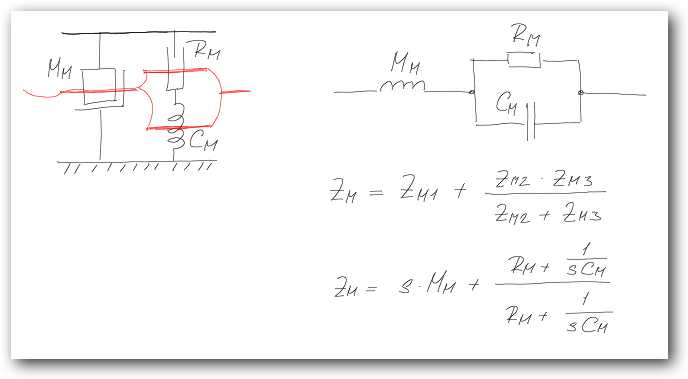 M_M
R_M
C_M
M_M
R_M
C_M
Z_M = Z_M1 + \frac{Z_M2 · Z_M3}{Z_M2 + Z_M3}
Z_M = s · M_M + \frac{R_M + \frac{1}{sC_M}}{R_M + \frac{1}{sC_M}}